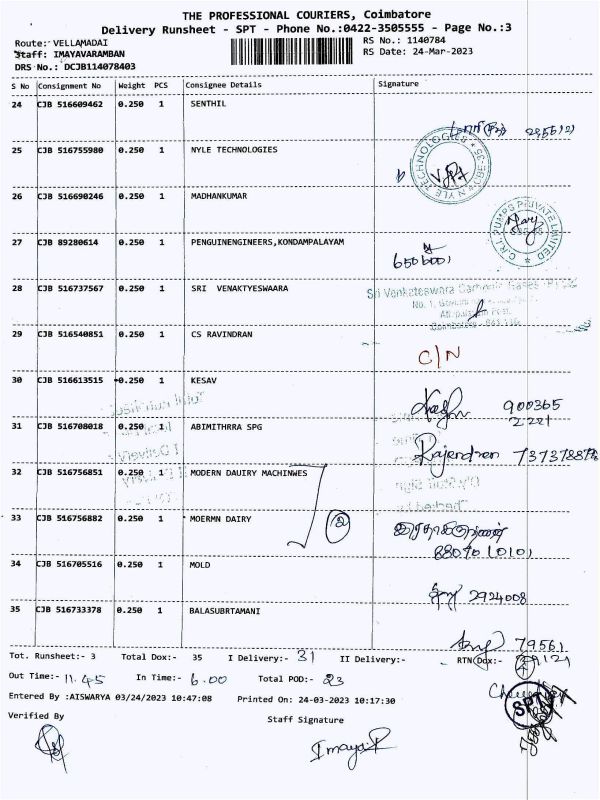 THE PROFESSIONAL COURIERS, Coimbatore
Delivery Runsheet - SPT - Phone No.:0422-3505555 - Page No.:3
Route: VELLAMADAI RS No.: 1140784
Staff: IMAYAVARAMBAN RS Date: 24-Mar-2023
DRS No.: DCJB114078403
S No Consignment No Weight PCS Consignee Details Signature
24 CJB 516609462 0.250 1 SENTHIL
25 CJB 516755980 0.250 1 NYLE TECHNOLOGIES
NYLE TECHNOLOGIES
26 CJB 516690246 0.250 1 MADHANKUMAR
C.R.I. PUMPS PRIVATE LIMITED
27 CJB 89280614 0.250 1 PENGUINENGINEERS,KONDAMPALAYAM
6506001
28 CJB 516737567 0.250 1 SRI VENAKTYESWAARA
Sri Venkateswara
29 CJB 516540851 0.250 1 CS RAVINDRAN
C/N
30 CJB 516613515 0.250 1 KESAV
900365
2221
31 CJB 516708018 0.250 1 ABIMITHRRA SPG
Rajendren
32 CJB 516756851 0.250 1 MODERN DAUIRY MACHINWES
33 CJB 516756882 0.250 1 MOERMN DAIRY
2
8807010101
34 CJB 516705516 0.250 1 MOLD
2924008
35 CJB 516733378 0.250 1 BALASUBRTAMANI
79561
Tot. Runsheet:- 3 Total Dox:- 35 I Delivery:- 31 II Delivery:- RTN Dox:-
Out Time:- 11.45 In Time:- 6.00 Total POD:- 23
Entered By :AISWARYA 03/24/2023 10:47:08 Printed On: 24-03-2023 10:17:30
SPT
Verified By Staff Signature